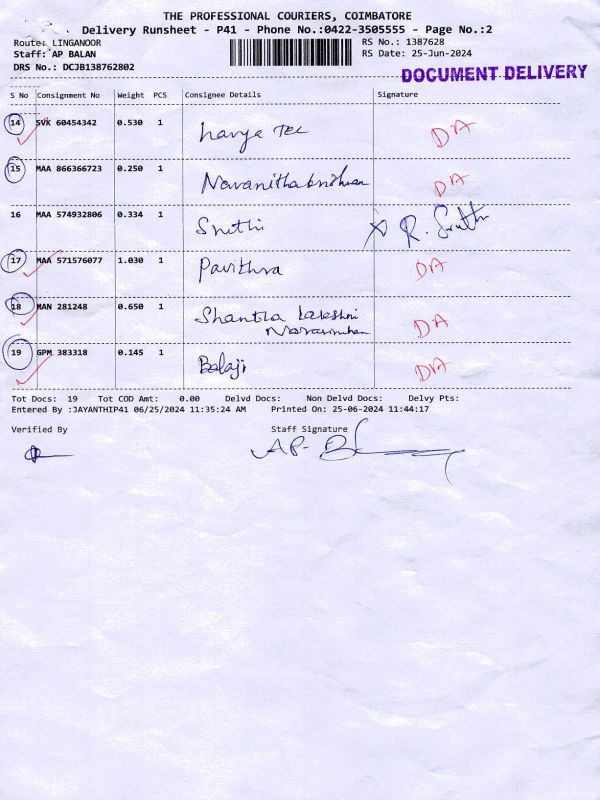 THE PROFESSIONAL COURIERS, COIMBATORE
Delivery Runsheet - P41 - Phone No.:0422-3505555 - Page No.:2
Route: LINGANOOR RS No.: 1387628
Staff: AP BALAN RS Date: 25-Jun-2024
DRS No.: DCJB138762802
DOCUMENT DELIVERY
S No Consignment No Weight PCS Consignee Details Signature
14 SVK 60454342 0.530 1 DA
15 MAA 866366723 0.250 1 Navanithakrishnan DA
16 MAA 574932806 0.334 1 Sruthi R. Sruthi
17 MAA 571576077 1.030 1 Pavithra DA
18 MAN 281248 0.650 1 Shantla Lakshmi
Narasimhan DA
19 GPM 383318 0.145 1 Balaji DA
Tot Docs: 19 Tot COD Amt: 0.00 Delvd Docs: Non Delvd Docs: Delvy Pts:
Entered By :JAYANTHIP41 06/25/2024 11:35:24 AM Printed On: 25-06-2024 11:44:17
Verified By Staff Signature
AP-